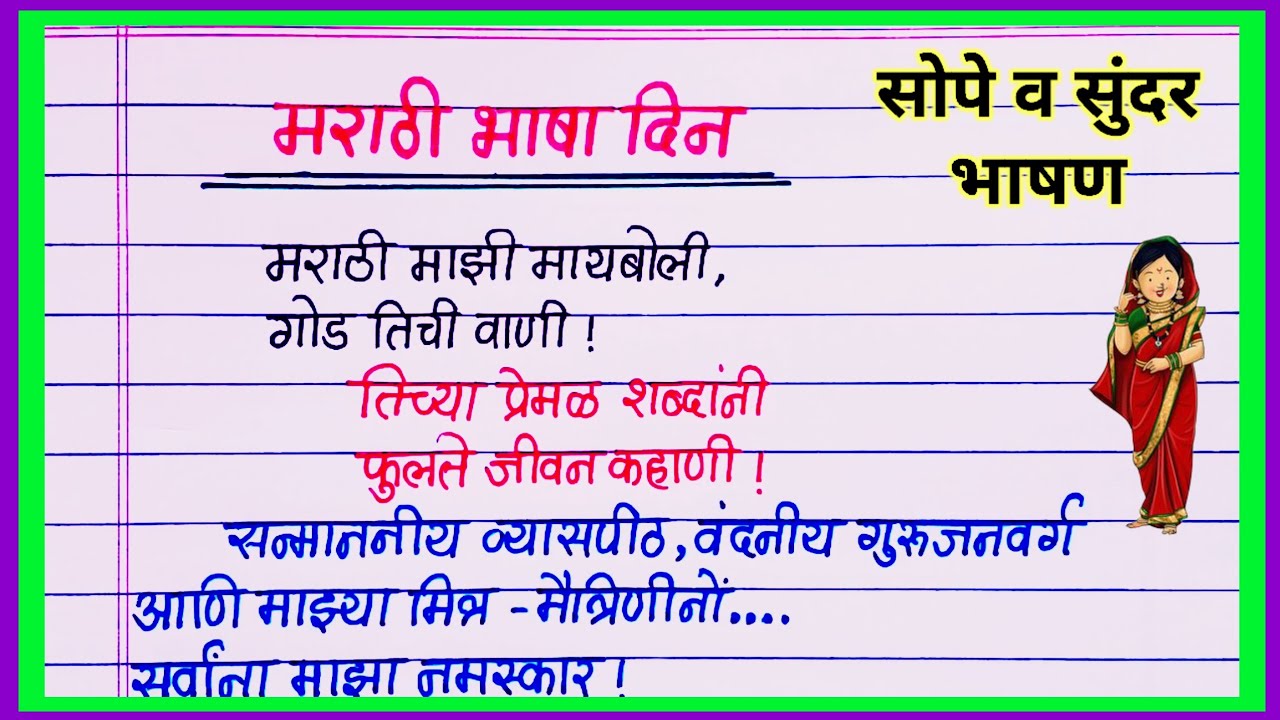 मराठी भाषा दिन
सोपे व सुंदर
भाषण
मराठी माझी मायबोली,
गोड तिची वाणी !
तिच्या प्रेमळ शब्दांनी
फुलते जीवन कहाणी !
सन्माननीय व्यासपीठ, वंदनीय गुरुजनवर्ग
आणि माझ्या मित्र - मैत्रिणीनों....
सर्वांना माझा नमस्कार !